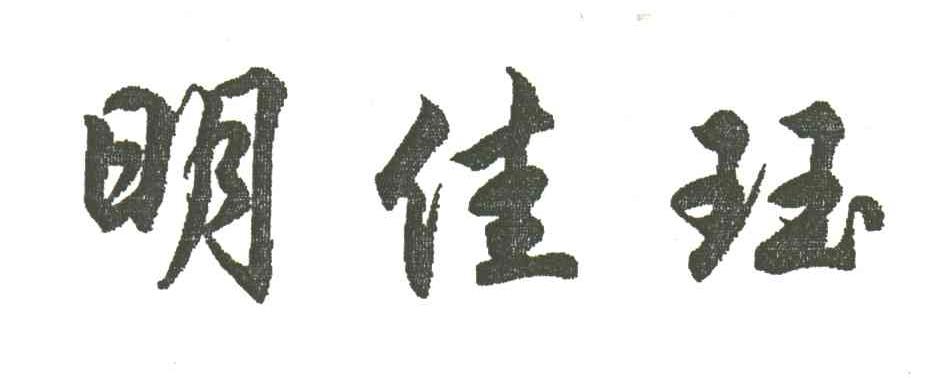 明佳珏